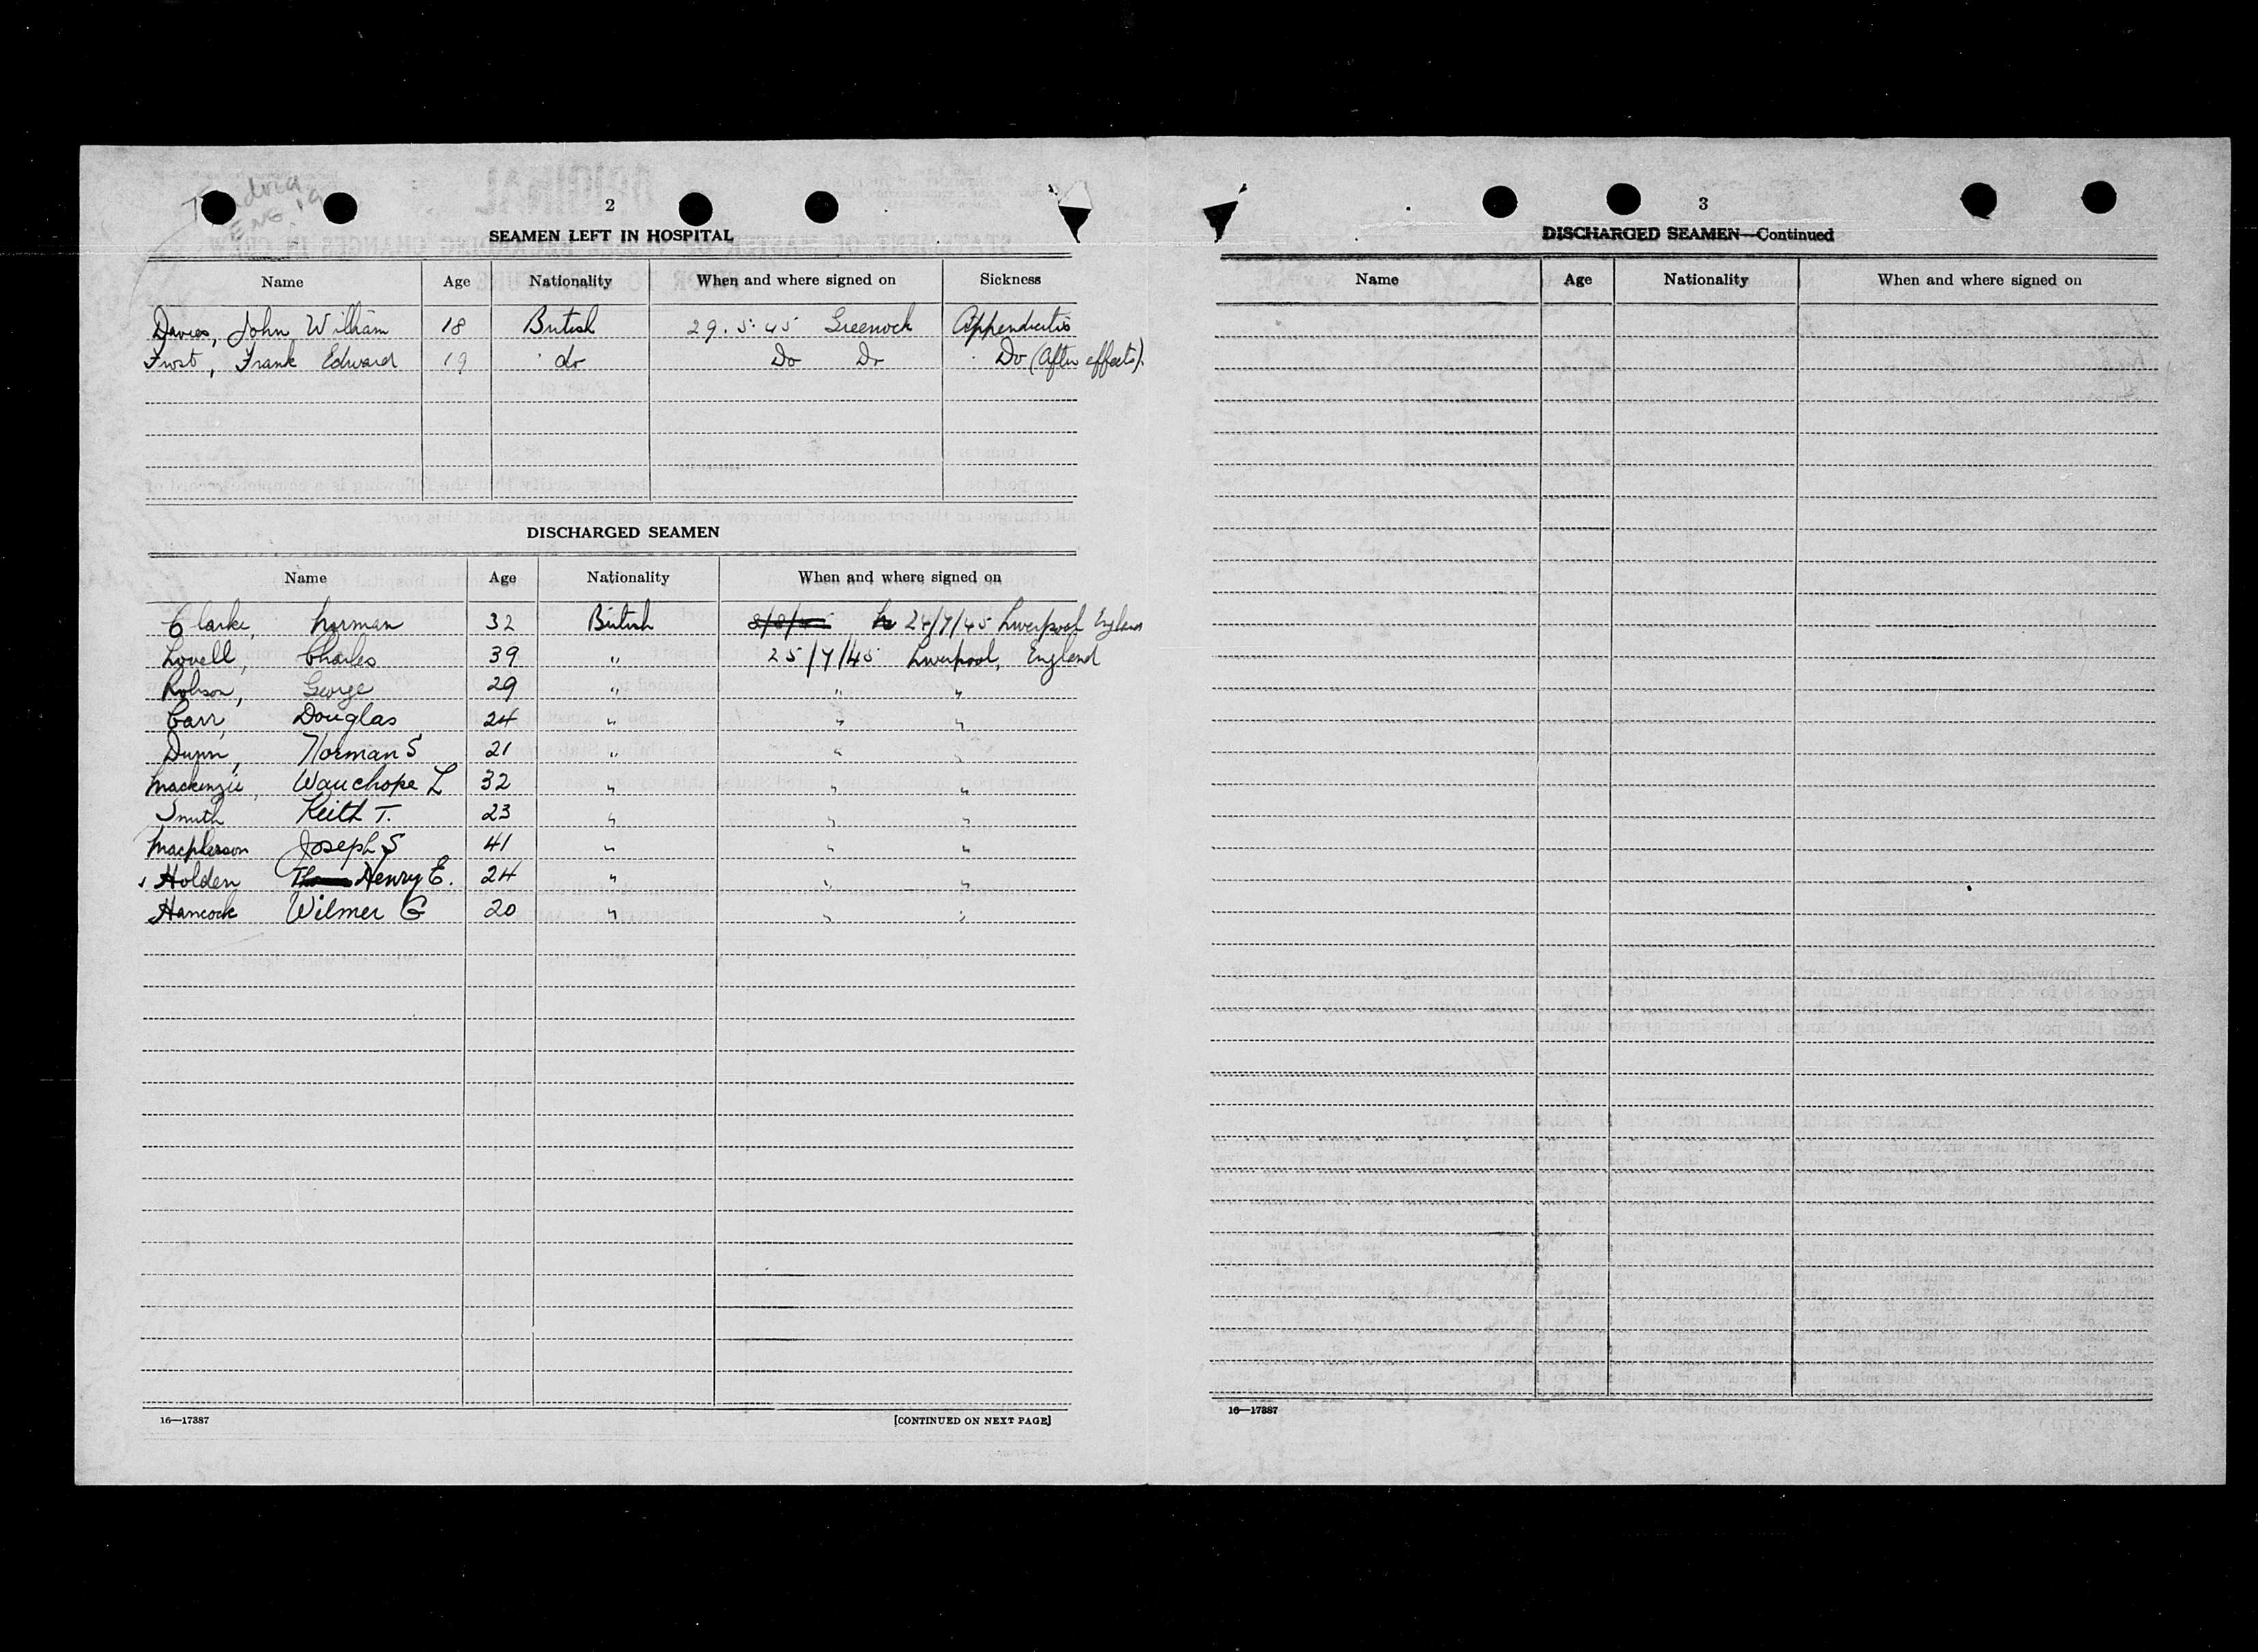 2
SEAMEN LEFT IN HOSPITAL
Name Age Nationality When and where signed on Sickness
Davies, John William 18 British 29.5.45 Greenock Appendicitis
Frost, Frank Edward 19 do Do Do Do (After effects).
DISCHARGED SEAMEN
Name Age Nationality When and where signed on
Clarke, Norman 32 British 24/7/45 Liverpool England
Lovell, Charles 39 " 25/7/45 Liverpool, England
Robson, George 29 " " "
Carr, Douglas 24 " " "
Dunn, Norman S 21 " " "
Mackenzie, Wauchope L 32 " " "
Smith Keith T. 23 " " "
Macpherson Joseph S 41 " " "
Holden Henry E. 24 " " "
Hancock Wilmer G 20 " " "
16—17387 [CONTINUED ON NEXT PAGE]
3
DISCHARGED SEAMEN—Continued
Name Age Nationality When and where signed on
16—17387